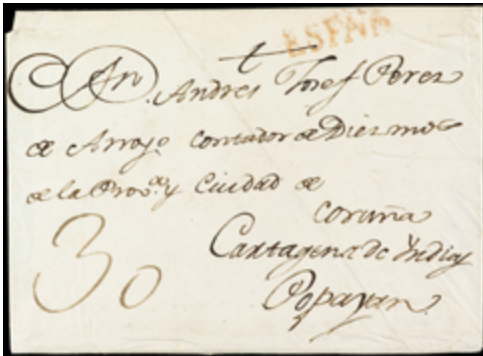 ESPAÑA
A Dn. Andres Josef Perez
de Arroyo Contador de Diezmos
de la Prov.ª y Ciudad de
Coruña
Cartagena de Yndias
Popayan
30